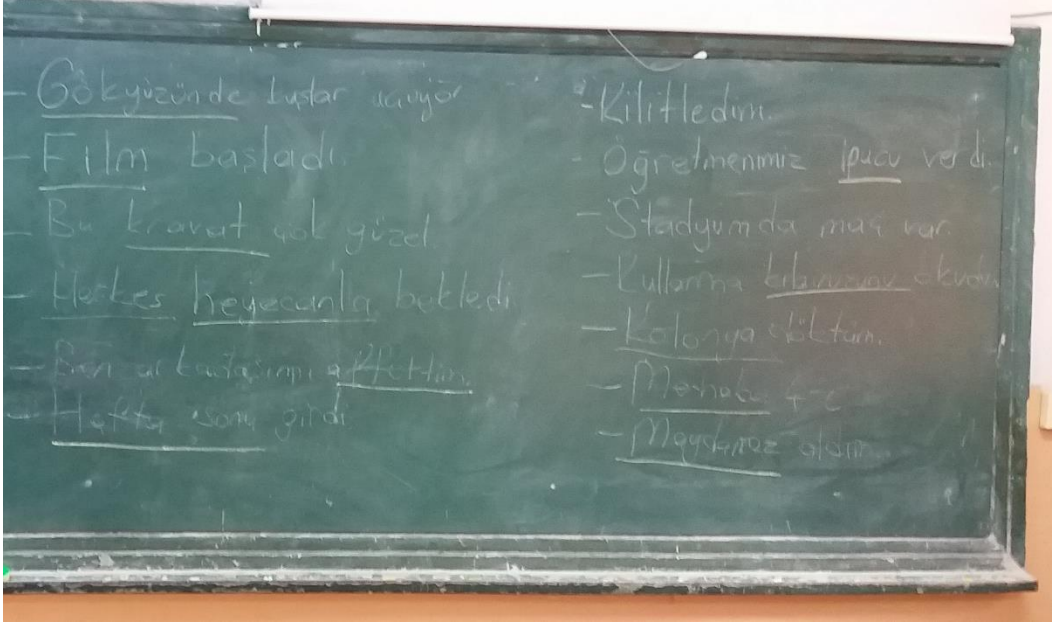 - Gökyüzünde kuşlar uçuyor
- Film başladı.
- Bu kravat çok güzel
- Herkes heyecanla bekledi.
- Ben arkadaşımı affettim.
- Hafta sonu girdi
- Kilitledim.
- Öğretmenimiz ipucu verdi.
- Stadyumda maç var.
- Kullanma kılavuzunu okudu
- Kolonya döktüm.
- Merhaba
- Maydanoz aldım